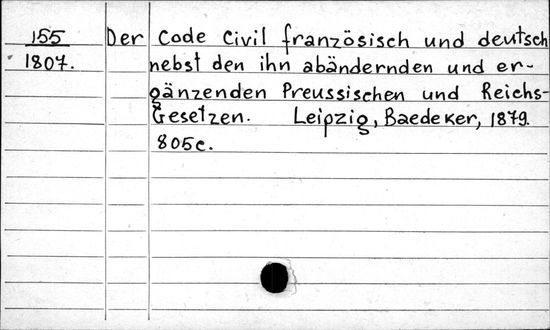 155 Der Code Civil französisch und deutsch
1807. nebst den ihn abändernden und er-
gänzenden Preussischen und Reichs-
Gesetzen. Leipzig, Baedeker, 1879.
805c.